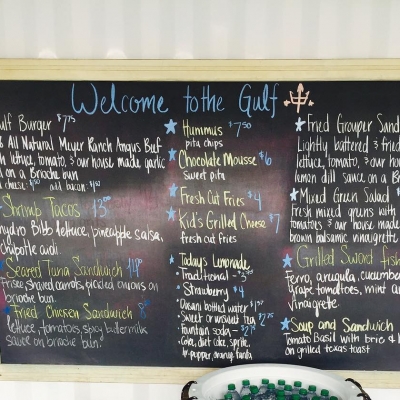 Welcome to the Gulf
Gulf Burger $7.75
% All Natural Meyer Ranch Angus Beef
lettuce, tomato, & our house made garlic
on a brioche bun
cheese: $.50 add bacon: $1.50
Shrimp Tacos 13.00
hydro Bibb lettuce, pineapple salsa,
chipotle aioli
Seared Tuna Sandwich 14.00
Frisee, shaved carrots, pickled onions on
brioche bun.
Fried Chicken Sandwich 8
lettuce, tomatoes, spicy buttermilk
sauce on brioche bun.
Hummus $7.50
pita chips
Chocolate Mousse $6
Sweet pita
Fresh Cut Fries $4
Kid's Grilled Cheese $7
fresh cut fries
Todays Lemonade
Traditional - $3.75
Strawberry $4
Dasani bottled water
Sweet or unsweet tea
Fountain soda - $2.75
Coke, diet coke, sprite,
dr. pepper, orange fanta
Fried Grouper Sand
Lightly battered & fried
lettuce, tomato, & our hou
lemon dill sauce on a Br
Mixed Green Salad
Fresh mixed greens with
tomatoes & our house made
brown balsamic vinaigrette
Grilled Sword fish
Ferro, arugula, cucumbe
grape tomatoes, mint
vinaigrette
Soup and Sandwich
Tomato Basil with brie &
on grilled texas toast